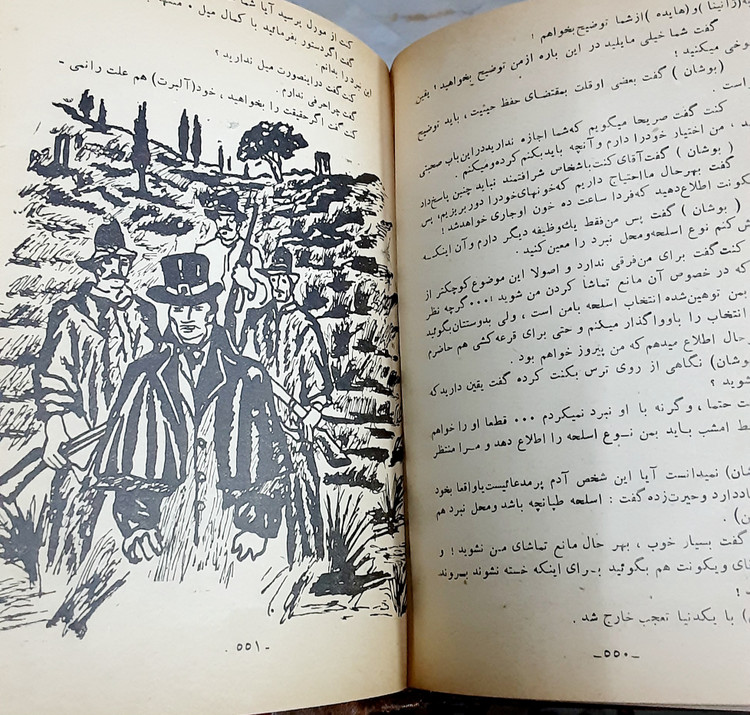 (ژانینا) و (هایده) از شما توضیح بخواهم !
گفت شما خیلی مایلید در این باره ازمن توضیح بخواهید ! یقین
شوخی میکنید !
(بوشان) گفت بعضی اوقات بمقتضای حفظ حیثیت ، باید توضیح
است .
کنت گفت صریحا میگویم که‌شما اجازه ندارید در این‌باب صحبتی
، من اختیار خودرا دارم و آنچه باید بکنم کرده‌ومیکنم .
(بوشان) گفت آقای کنت باشخاص شرافتمند نباید چنین پاسخ‌داد
گفت بهرحال ما احتیاج داریم که‌خونهای‌خودرا دور بریزیم، پس
ویکونت اطلاع‌دهید که‌فردا ساعت ده خون اوجاری خواهدشد !
(بوشان) گفت پس من‌فقط یك‌وظیفه دیگر دارم و آن اینکه
کنم نوع اسلحه‌ومحل نبرد را معین کنید .
کنت‌گفت برای من‌فرقی ندارد و اصولا این موضوع کوچکتر از
که در خصوص آن مانع تماشا کردن من شوید ،... گرچه نظر
بمن توهین‌شده انتخاب اسلحه بامن است ، ولی بدوستتان‌بگوئید
انتخاب را باوواگذار میکنم و حتی برای قرعه‌کشی هم حاضرم
حال اطلاع میدهم که من پیروز خواهم بود.
(بوشان) نگاهی از روی ترس بکنت کرده گفت یقین دارید که
شوید ؟
حتما ، وگرنه با او نبرد نمیکردم ... قطعا او را خواهم
فقط امشب باید بمن نوع اسلحه را اطلاع دهد و مرا منتظر
(بوشان) نمیدانست آیا این شخص آدم پرمدعائیست یا واقعا بخود
دارد وحیرت‌زده گفت : اسلحه طپانچه باشد ومحل نبرد هم
) .
گفت بسیار خوب ، بهر حال مانع تماشای من نشوید ! و
ویکونت هم بگوئید برای اینکه خسته نشوند بروند
!
) با یکدنیا تعجب خارج شد .
-۵۵۰-
کنت از مورل پرسید آیا شما
گفت اگر دستور بفرمائید با کمال میل .
نبرد را بدانم .
کنت گفت دراینصورت میل ندارید ؟
گفت چرا حرفی ندارم .
کنت گفت اگر حقیقت را بخواهید ، خود(آلبرت) هم علت را نمی-
-۵۵۱-